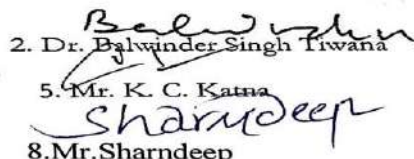 Balwinder
2. Dr. Balwinder Singh Tiwana
5. Mr. K. C. Katna
Sharndeep
8.Mr.Sharndeep